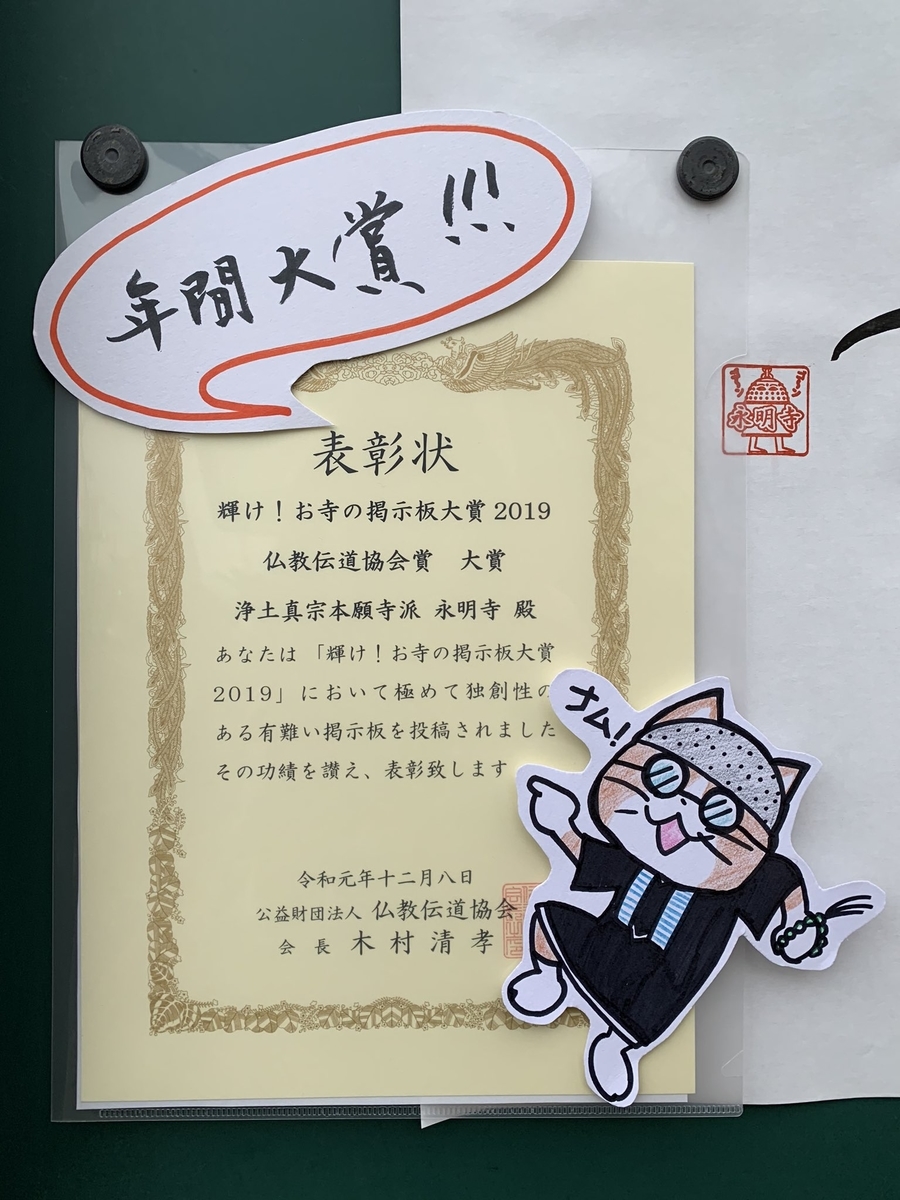 年間大賞!!!
表彰状
輝け！お寺の掲示板大賞2019
仏教伝道協会賞　大賞
浄土真宗本願寺派 永明寺 殿
あなたは「輝け！お寺の掲示板大賞
2019」において極めて独創性の
ある有難い掲示板を投稿されました
その功績を讃え、表彰致します
令和元年十二月八日
公益財団法人 仏教伝道協会
会 長 木村清孝
ナム!
永明寺